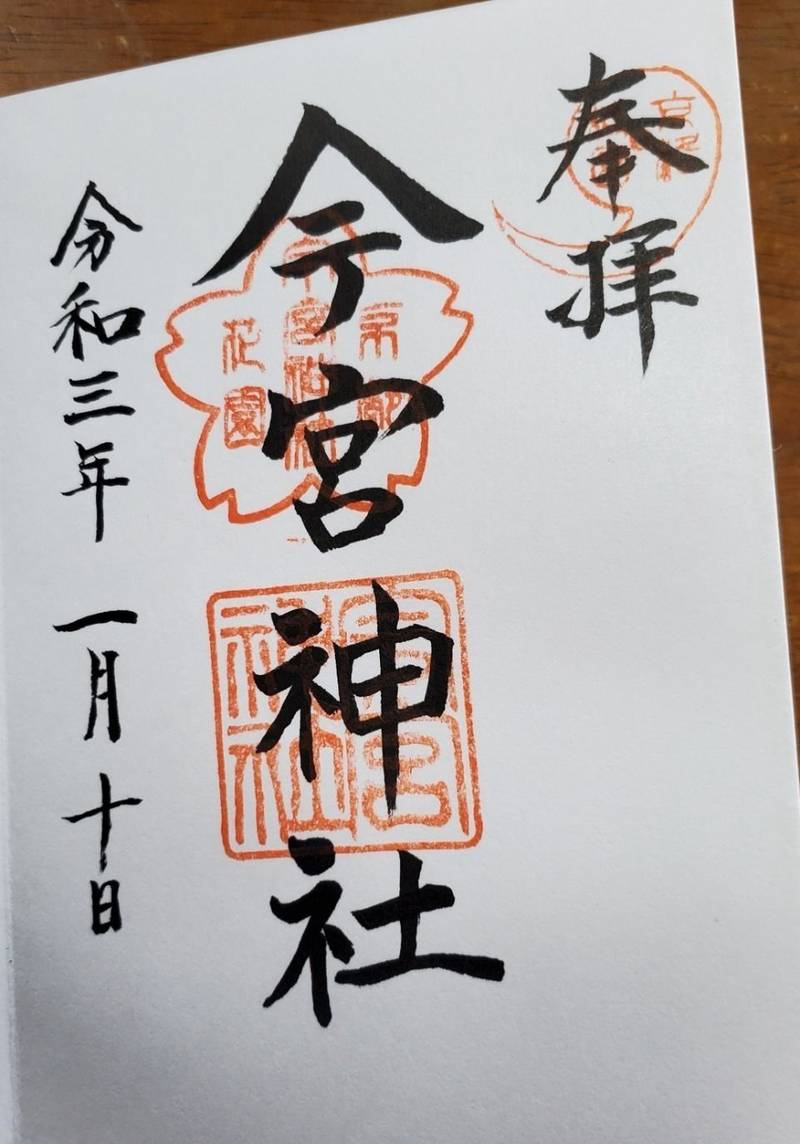 奉拝
今宮神社
令和三年 一月十日
京都
今宮神社
花園